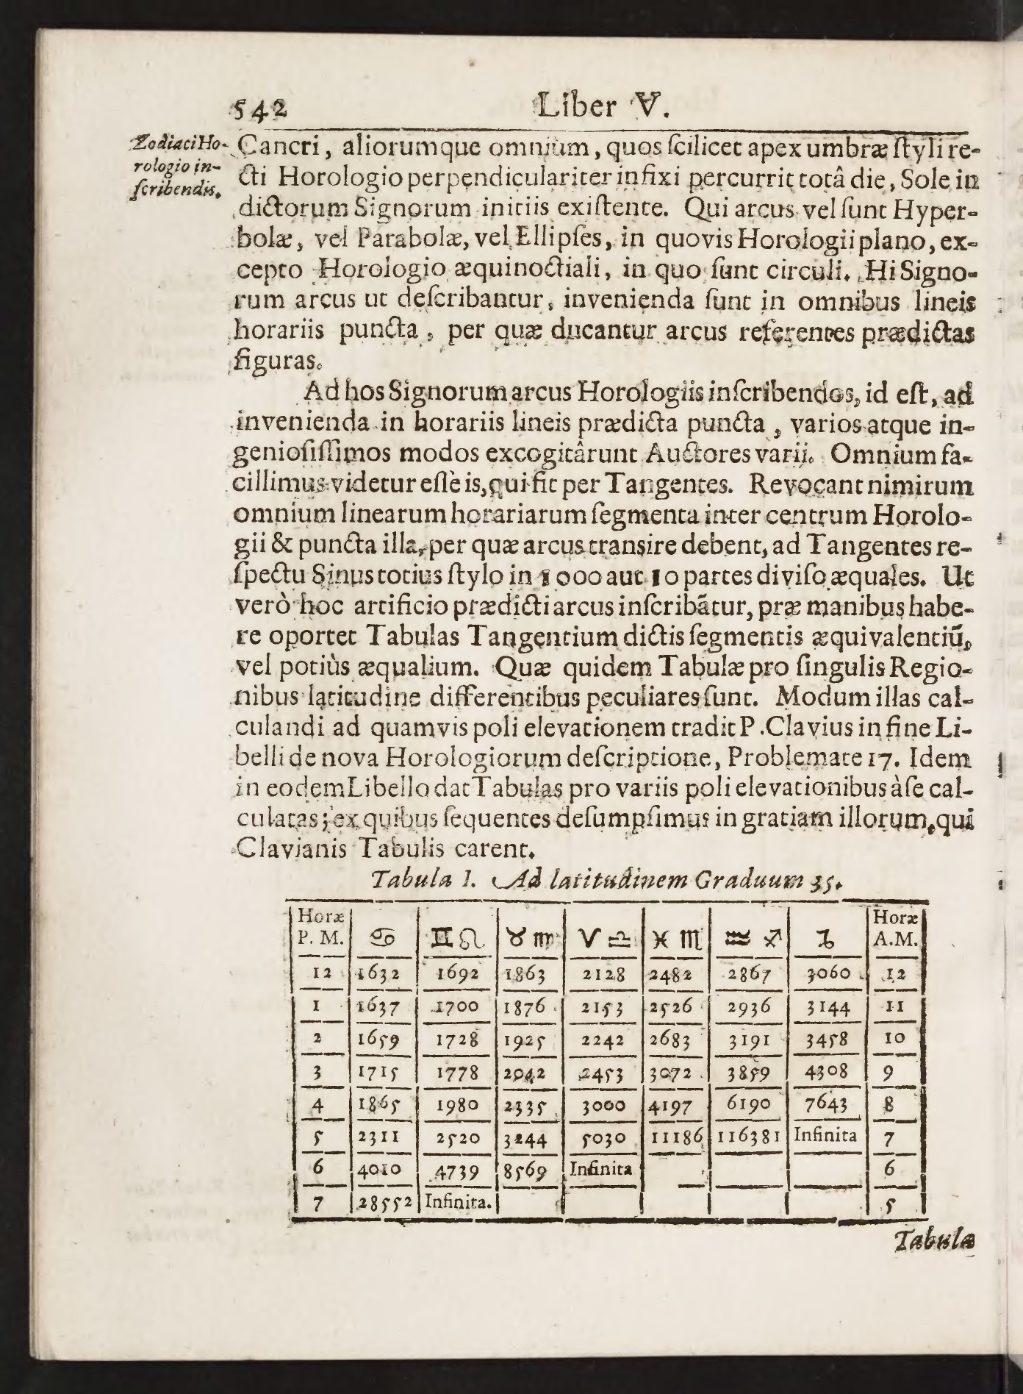 542 Liber V.
Zodiaci Ho-
rologio in-
ſcribendis.
Cancri, aliorumque omnium, quos ſcilicet apex umbræ ſtyli re-
cti Horologio perpendiculariter infixi percurrit totâ die, Sole in
dictorum Signorum initiis exiſtente. Qui arcus vel ſunt Hyper-
bolæ, vel Parabolæ, vel Ellipſes, in quovis Horologii plano, ex-
cepto Horologio æquinoctiali, in quo ſunt circuli. Hi Signo-
rum arcus ut deſcribantur, invenienda ſunt in omnibus lineis
horariis puncta, per quæ ducantur arcus referentes prædictas
figuras.
Ad hos Signorum arcus Horologiis inſcribendos, id eſt, ad
invenienda in horariis lineis prædicta puncta, varios atque in-
genioſiſſimos modos excogitârunt Auctores varii. Omnium fa-
cillimus videtur eſſe is, qui fit per Tangentes. Revocant nimirum
omnium linearum horariarum ſegmenta inter centrum Horolo-
gii & puncta illa, per quæ arcus transire debent, ad Tangentes re-
ſpectu Sinus totius ſtylo in 1000 aut 10 partes diviſo æquales. Ut
verò hoc artificio prædicti arcus inſcribãtur, præ manibus habe-
re oportet Tabulas Tangentium dictis ſegmentis æquivalentiũ,
vel potiùs æqualium. Quæ quidem Tabulæ pro ſingulis Regio-
nibus latitudine differentibus peculiares ſunt. Modum illas cal-
culandi ad quamvis poli elevationem tradit P. Clavius in fine Li-
belli de nova Horologiorum deſcriptione, Problemate 17. Idem
in eodem Libello dat Tabulas pro variis poli elevationibus à ſe cal-
culatas; ex quibus ſequentes deſumpſimus in gratiam illorum, qui
Clavianis Tabulis carent.
Tabula I. Ad latitudinem Graduum 35.
Horæ P. M. ♋ ♊ ♌ ♉ ♍ ♈ ♎ ♓ ♏ ♒ ♐ ♑ Horæ A.M.
12 1632 1692 1863 2128 2482 2867 3060 12
1 1637 1700 1876 2153 2526 2936 3144 11
2 1659 1728 1925 2242 2683 3191 3458 10
3 1715 1778 2042 2453 3072 3859 4308 9
4 1865 1980 2335 3000 4197 6190 7643 8
5 2311 2520 3244 5030 11186 116381 Infinita 7
6 4010 4739 8569 Infinita 6
7 28552 Infinita. 5
Tabula